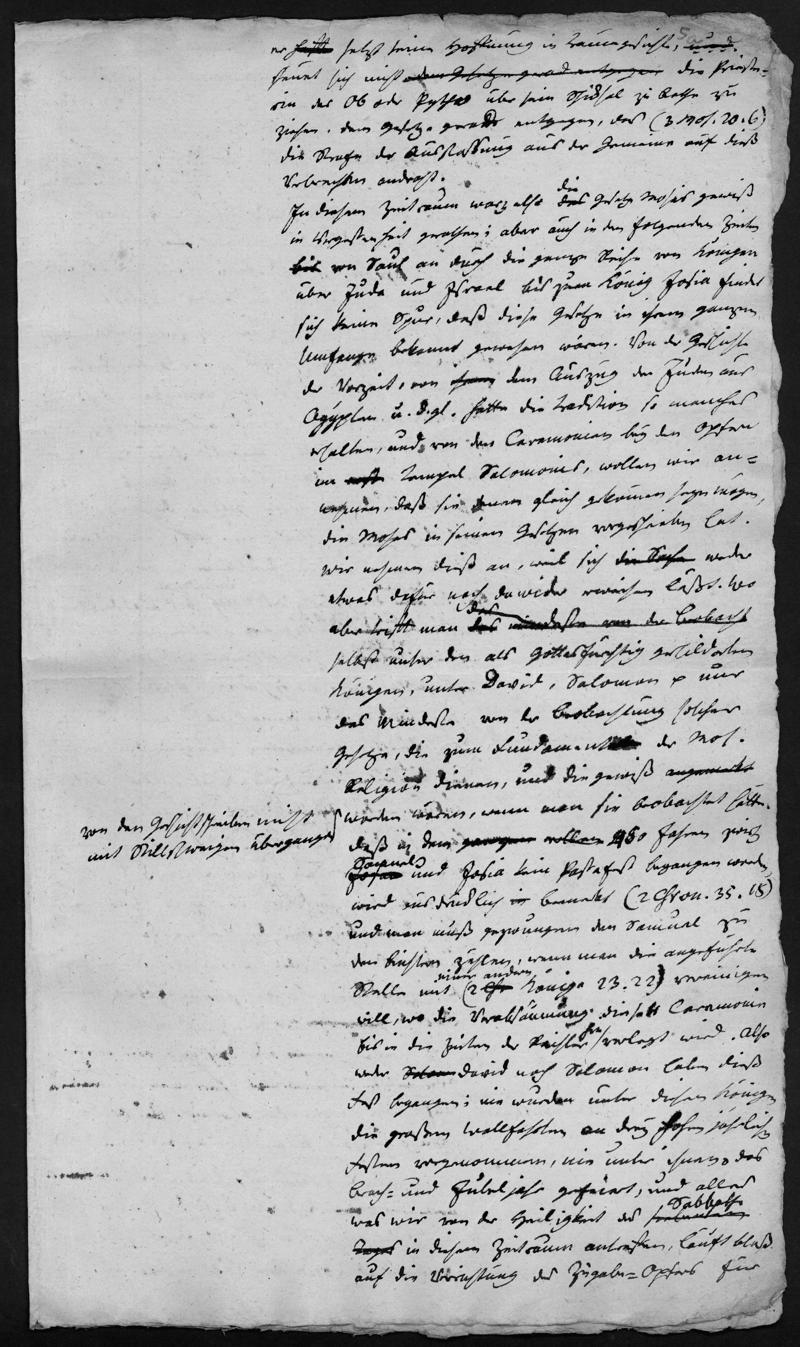 er hofft setzt seine Hoffnung in Traumgesichte, und
scheuet sich nicht dem Gesetze gerad entgegen die Prieste-
rin des Ob oder Pytho über sein Schiksal zu Rathe zu
ziehen. dem Gesetze gerade entgegen, das (3 Mos. 20. 6)
die Strafe der Ausstossung aus der Gemeine auf dieß
Verbrechen androht.
In diesem Zeitraum war also die das Gesetze Mosis gewiß
in Vergessenheit gerathen; aber auch in den folgenden Zeiten
bis von Saul an durch die ganze Reihe von Königen
über Juda und Israel bis zum König Josia findet
sich keine Spur, daß diese Gesetze in ihrem ganzen
Umfange bekannt gewesen wären. Von der Geschichte
der Vorzeit, von dem Auszug der Juden aus
Ägypten u. d. gl. hatte die Tradition so manches
erhalten, und von den Ceremonien bey den Opfern
im Tempel Salomonis, wollen wir an-
nehmen, daß sie denen gleich gekommen seyn mögen,
die Moses in seinen Gesetzen vorgeschrieben hat.
wir nehmen dieß an, weil sich die Sache weder
etwas dafür noch dawider erweisen läßt. Wo
aber trifft man das das mindeste von der Beobacht
selbst unter den als gottesfürchtig geschilderten
Königen, unter David, Salomon nur
das Mindeste von der Beobachtung solcher
Gesetze, die zum Fundament der Mos.
Religion dienen, und die gewiß angemerkt
von den Geschichtschreibern nicht
mit Stillschweigen übergangen
worden wären, wenn man sie beobachtet hätte.
daß in den ganzen vollen 450 Jahren zwischen
Samuel und Josia kein Passafest begangen worden,
wird ausdrücklich bemerkt (2 Chron. 35. 18)
und man muß gezwungen den Samuel zu
den Richtern zählen, wenn man die angeführte
Stelle mit einer andern (2 Könige 23. 22) vereinigen
will, wo die Verabsäumung dieser Ceremonie
bis in die Zeiten der Richter verlegt wird. Also
weder David noch Salomon haben dieß
Fest begangen; nie wurden unter diesen Königen
die großen Wallfahrten an drey hohen jährlichen
Festen vorgenommen, nie unter ihnen das
Brach- und Jubeljahr gefeiert, und alles
was wir von der Heiligkeit des siebenten Sabbaths
Tages in diesem Zeitraum antreffen, läuft bloß
auf die Verrichtung des Zugabe-Opfers für